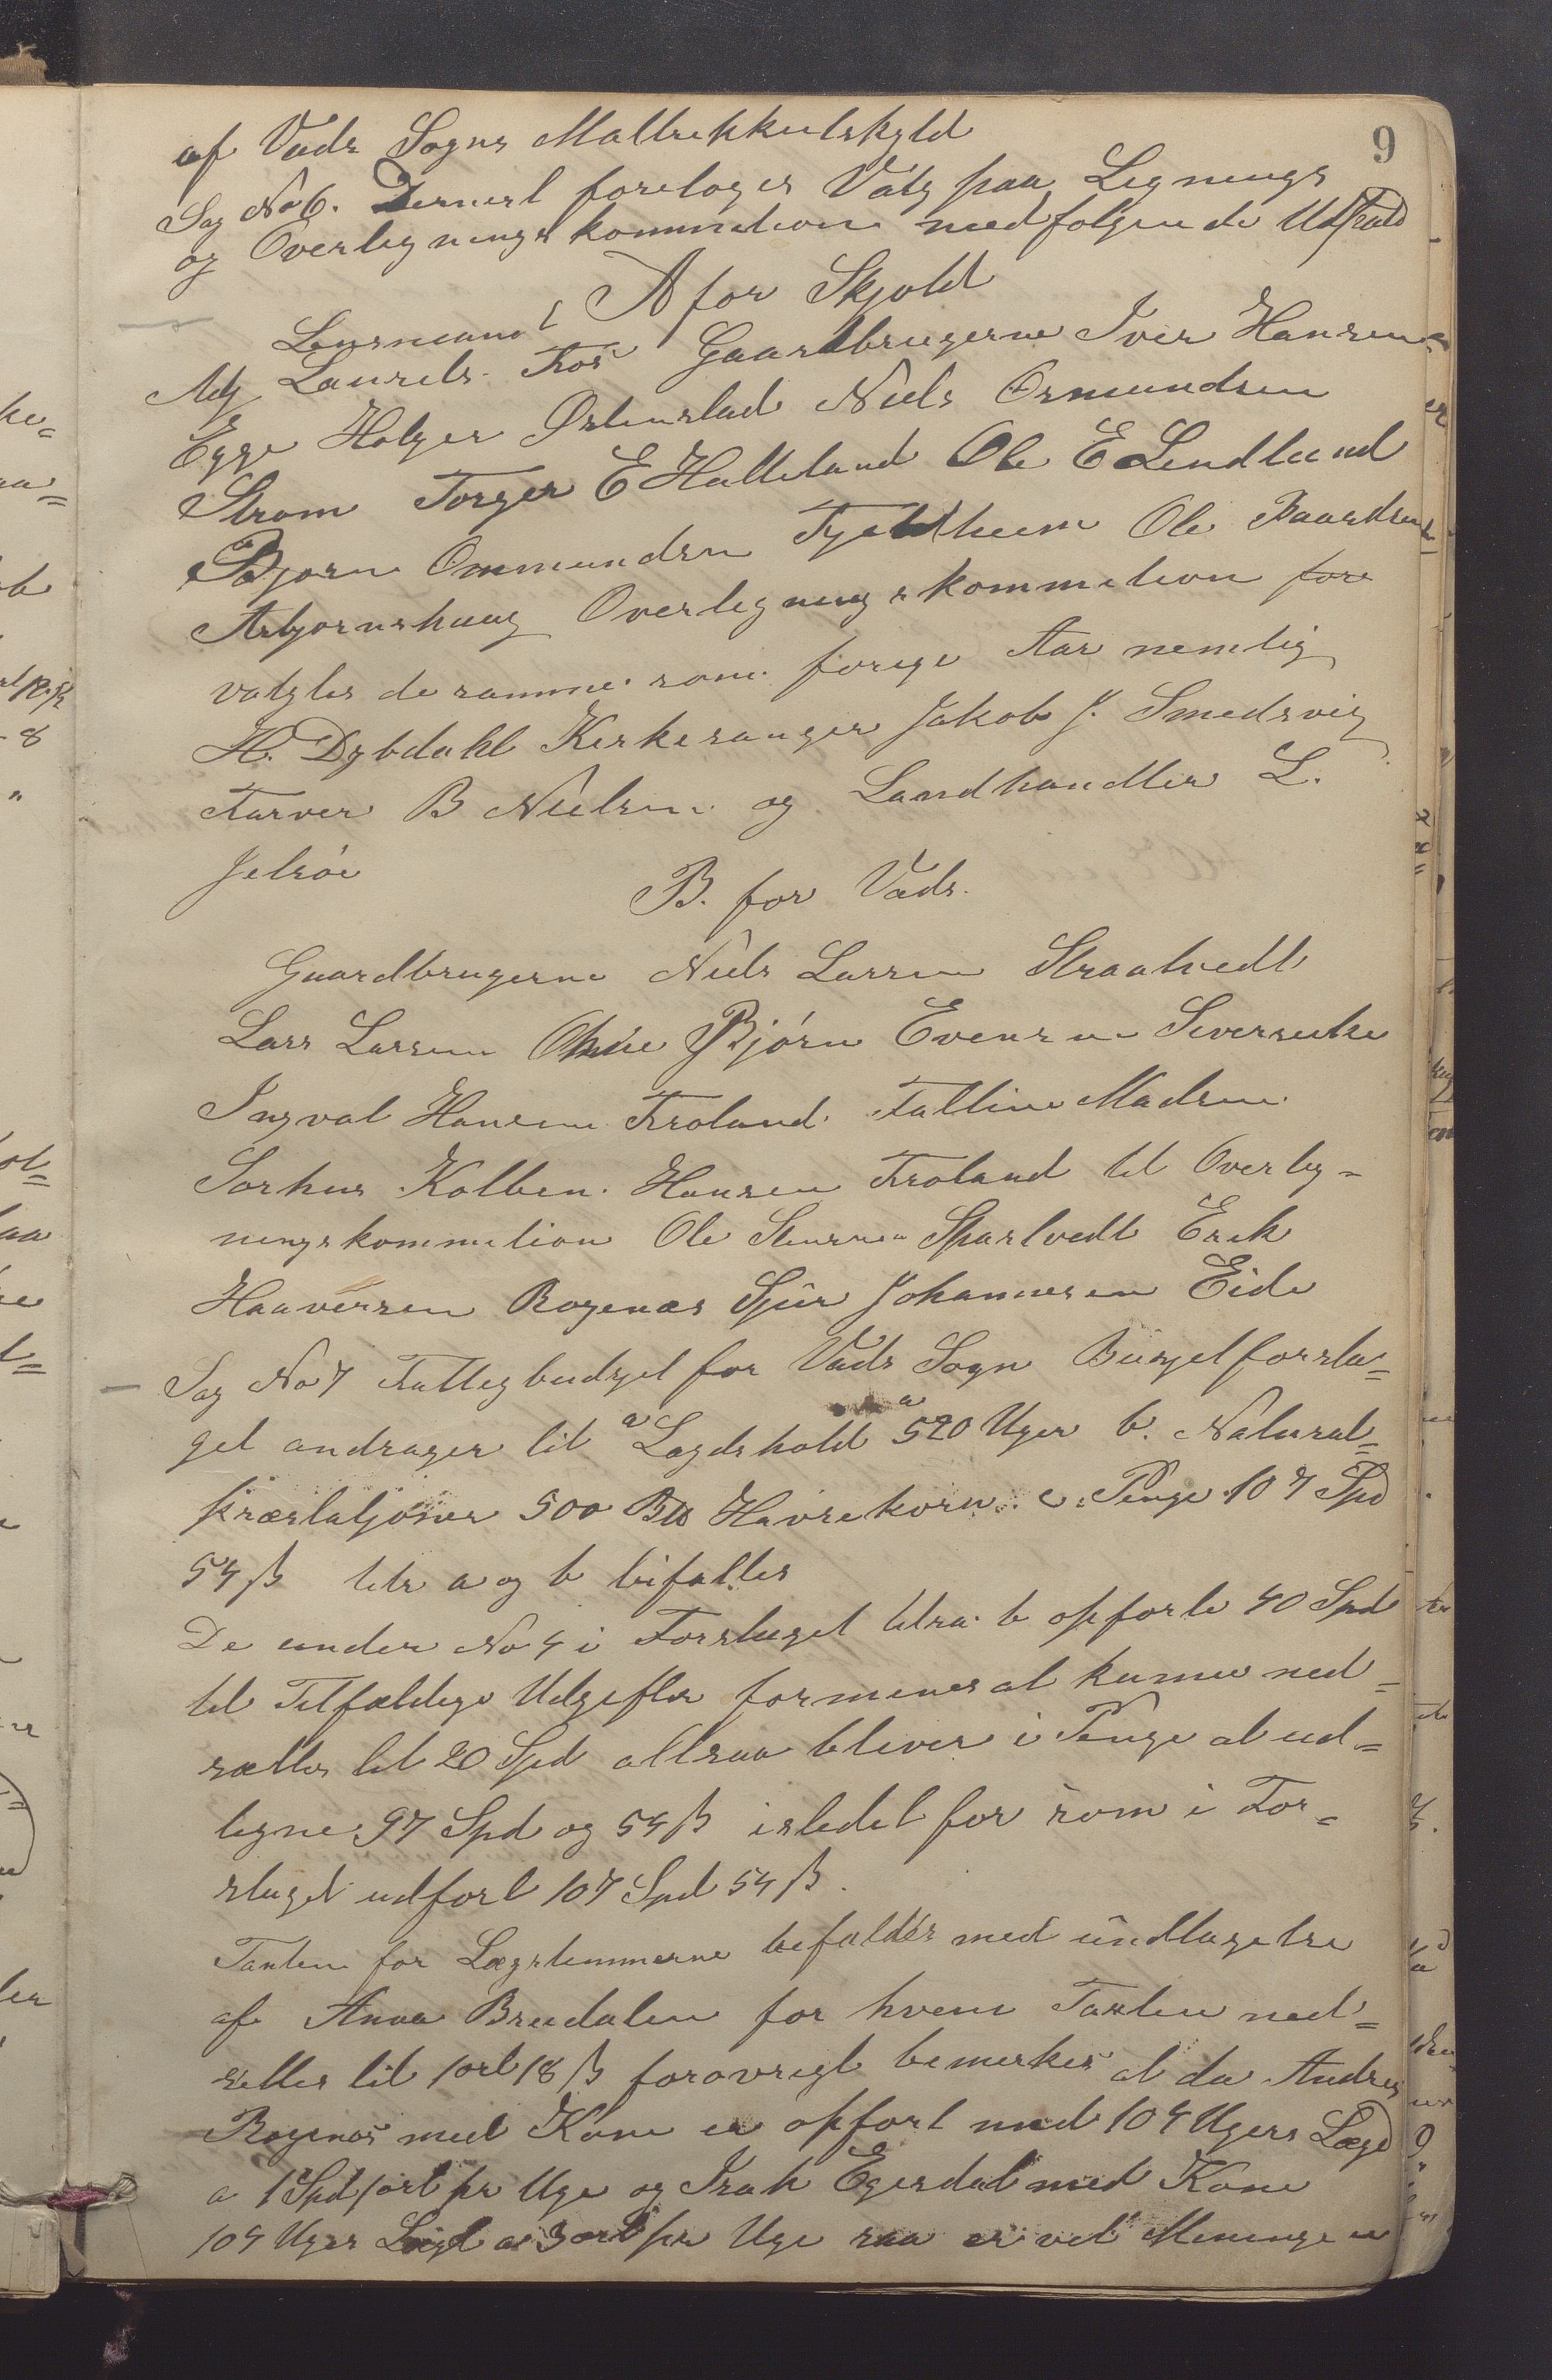 9
af Vads Sogns Mattrikkulskyld
Sag No 6. Dernest foretoges Valg paa Lignings
og Overligningskommition med følgende Udfald
A for Skjold
Lensmand
Adj Laurets Gaardbrugerne Iver Hansen
Egge Holger Østenstad Niels Osmundsen
Strøm Torger E Halleland Ole E Lendland
Bjørn Ommundsen Tjeldheim Ole Baardsen
Asbjørnshaug Overligningskommition fore
valgtes de samme som forige Aar nemlig
H. Dybdahl Kirkesanger Jakob J. Smedsvig
Farver B Nielsen og Landhandler L.
Jelsøe
B. for Vads.
Gaardbrugerne Niels Larsen Straatvedt
Lars Larsen Bjørn Evensen
Ingval Hansen Frøland Madsen
Sørhus Kolben Hansen Frøland til Overlig-
ningskommition Ole Stensen Spartvedt Erik
Haaversen Rogenæs Sjur Johannesen Eide
Sag No 7 Fattigbudget for Vads Sogn Budgetforsla=
get andrager til a Lægdshold 520 Uger b. Natural=
præstatjoner 500 Havrekorn c. Penge 107 Spd
54 ß litr a og b bifalles
De under No 4 i Forslaget litra b opførte 40 Spd
til Tilfældige Udgifter formenes at kunne ned=
sættes til 20 Spd altsaa bliver i Penge at ud=
ligne 97 Spd og 54 ß istedet for som i For=
slaget udført 107 Spd 54 ß.
Taxten for Lægslemmerne bifaldes med undtagelse
af Anna Brudalen for hvem Taxten ned=
settes til 1 ort 18 ß forøvrigt bemerkes at da Andres
Rogenæs med Kone er opført med 104 Ugers Lægd
a 1 Spd 1 ort pr Uge og Isak Egesdal med Kone
104 Uger Lægd a 3 ort pr Uge saa er vel Meningen